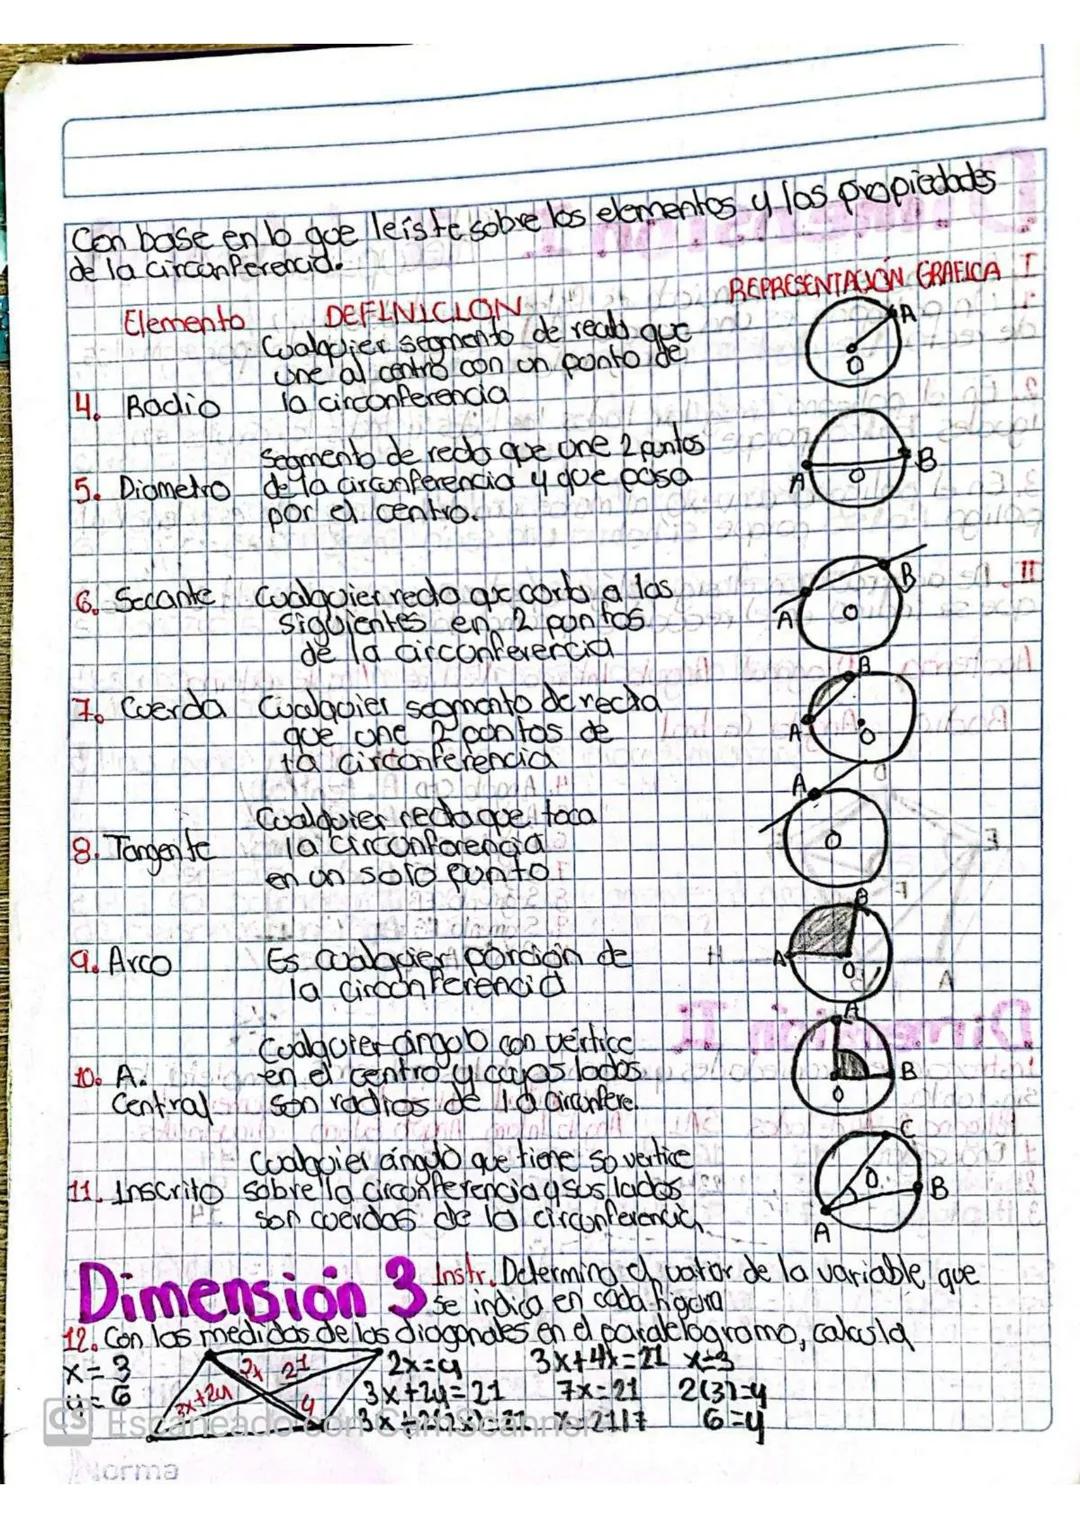 Con base en lo que leíste sobre los elementos y los propiedades
de la circunferencia.
Elemento DEFINICION REPRESENTACION GRAFICA
Cualquier segmento de recta que
une al centro con un punto de
4. Radio la circonferencia
A
O
Segmento de recta que une 2 puntos
5. Diametro de la circunferencia y que pasa
por el centro.
A O B
6. Secante Cualquier recta que corta a las
siguientes en 2 puntos
de la circunferencia
A B
O
7. Cuerda Cualquier segmento de recta
que une 2 pontos de
la circonferencia
B
A
O
Cualquier recta que toca
8. Tangente la circonferencia
en un solo punto
A
O
9. Arco Es cualquier porcion de
la circonferencia
B
A
O
Cualquier ángulo con vértice
10. A. en el centro y cuyos lados
Central son radios de la circunfere.
A
B
O
Cualquier ángulo que tiene so vertice
11. Inscrito sobre la circonferencia y sus lados
son cuerdas de la circonferencia
C
O B
A
Dimensión 3 Instr. Determina el valor de la variable que
se indica en cada figura
12. Con las medidas de las diagonales en el paralelogramo, calcula
x=3 2x 21 2x=y 3x+4x=21 x=3
y=6 3x+2y y 3x+2y=21 7x=21 2(3)=y
3x+2(2x)=21 x=21/7 6=y
CS Escaneado con CamScanner
Norma